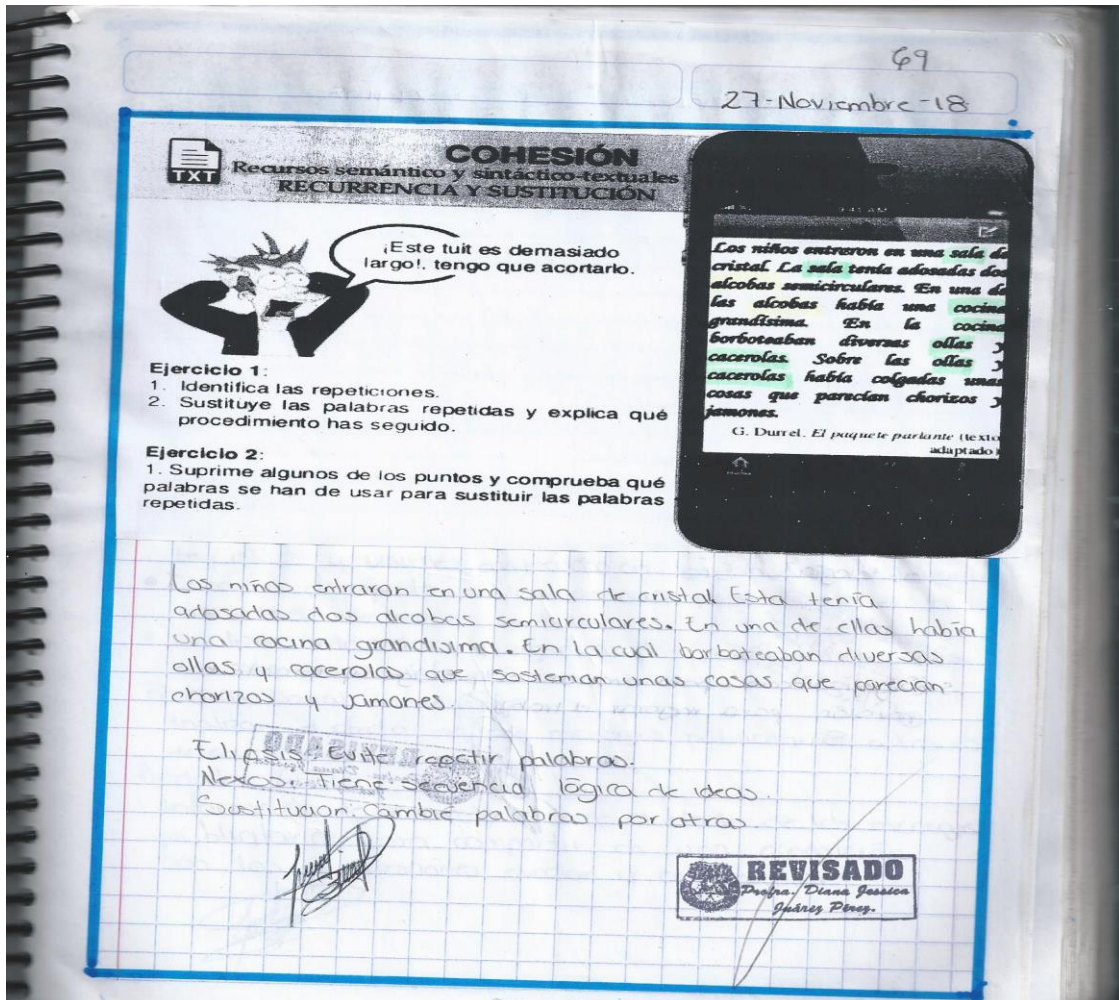 69
27-Noviembre-18
TXT
COHESIÓN
Recursos semántico y sintáctico-textuales
RECURRENCIA Y SUSTITUCIÓN
¡Este tuit es demasiado
largo!, tengo que acortarlo.
Ejercicio 1:
1. Identifica las repeticiones.
2. Sustituye las palabras repetidas y explica qué
procedimiento has seguido.
Ejercicio 2:
1. Suprime algunos de los puntos y comprueba qué
palabras se han de usar para sustituir las palabras
repetidas.
9:41 AM
Los niños entraron en una sala de
cristal. La sala tenía adosadas dos
alcobas semicirculares. En una de
las alcobas había una cocina
grandísima. En la cocina
borboteaban diversas ollas y
cacerolas. Sobre las ollas y
cacerolas había colgadas unas
cosas que parecían chorizos y
jamones.
G. Durrel. El paquete parlante (texto
adaptado)
Los niños entraron en una sala de cristal. Esta tenía
adosadas dos alcobas semicirculares. En una de ellas había
una cocina grandisima. En la cual borboteaban diversas
ollas y cacerolas que sostenian unas cosas que parecian
chorizos y jamones.
Elipsis. Evite repetir palabras.
Nexos. Tiene secuencia lógica de ideas.
Sustitucion. Cambie palabras por otras.
REVISADO
Profra. Diana Jessica
Juárez Pérez.